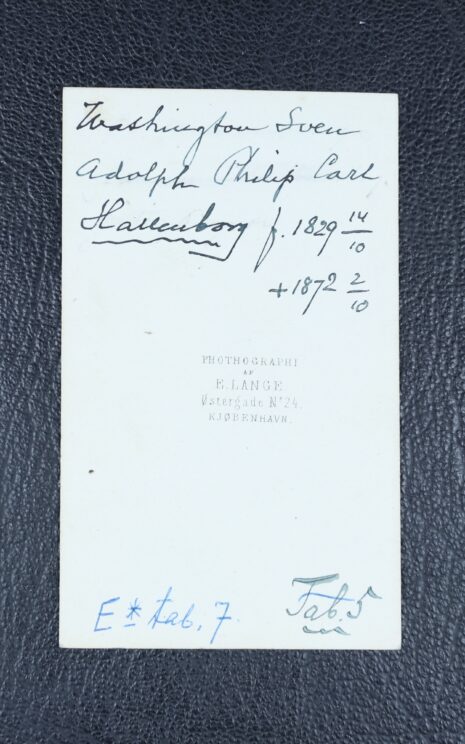 Washington Sven
Adolph Philip Carl
Hallenborg f. 1829 14/10
+ 1872 2/10
PHOTHOGRAPHI
AF
E. LANGE
Østergade No 24.
KJØBENHAVN.
E* tab. 7.
Tab. 5